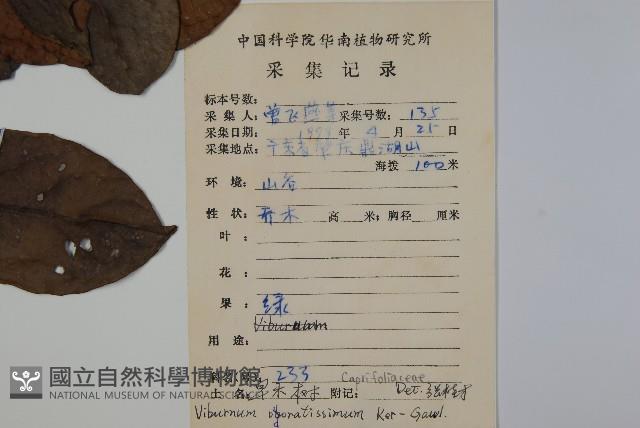 中国科学院华南植物研究所
采集记录
标本号数：
采集人：曾飞燕等 采集号数：135
采集日期：1999 年 4 月 25 日
采集地点：广东省肇庆鼎湖山
海拨 100 米
环境：山谷
性状：乔木 高 米；胸径 厘米
叶：
花：
果：绿
Viburnum
用途：
233 Caprifoliaceae
土名： 木树 附记： Det.
Viburnum odoratissimum Ker-Gawl.
國立自然科學博物館
NATIONAL MUSEUM OF NATURAL SCIENCE